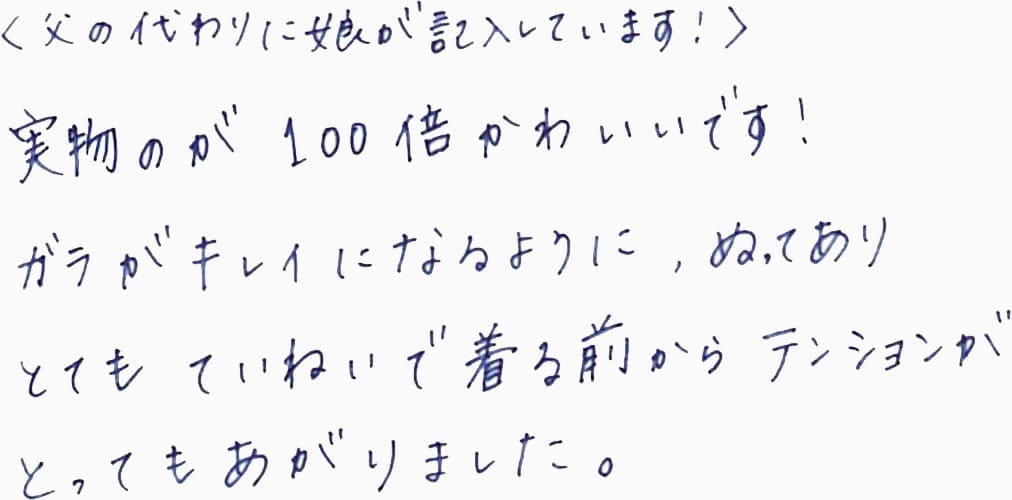 <父の代わりに娘が記入しています!>
実物のが100倍かわいいです!
ガラがキレイになるように,ぬってあり
とてもていねいで着る前からテンションが
とってもあがりました。